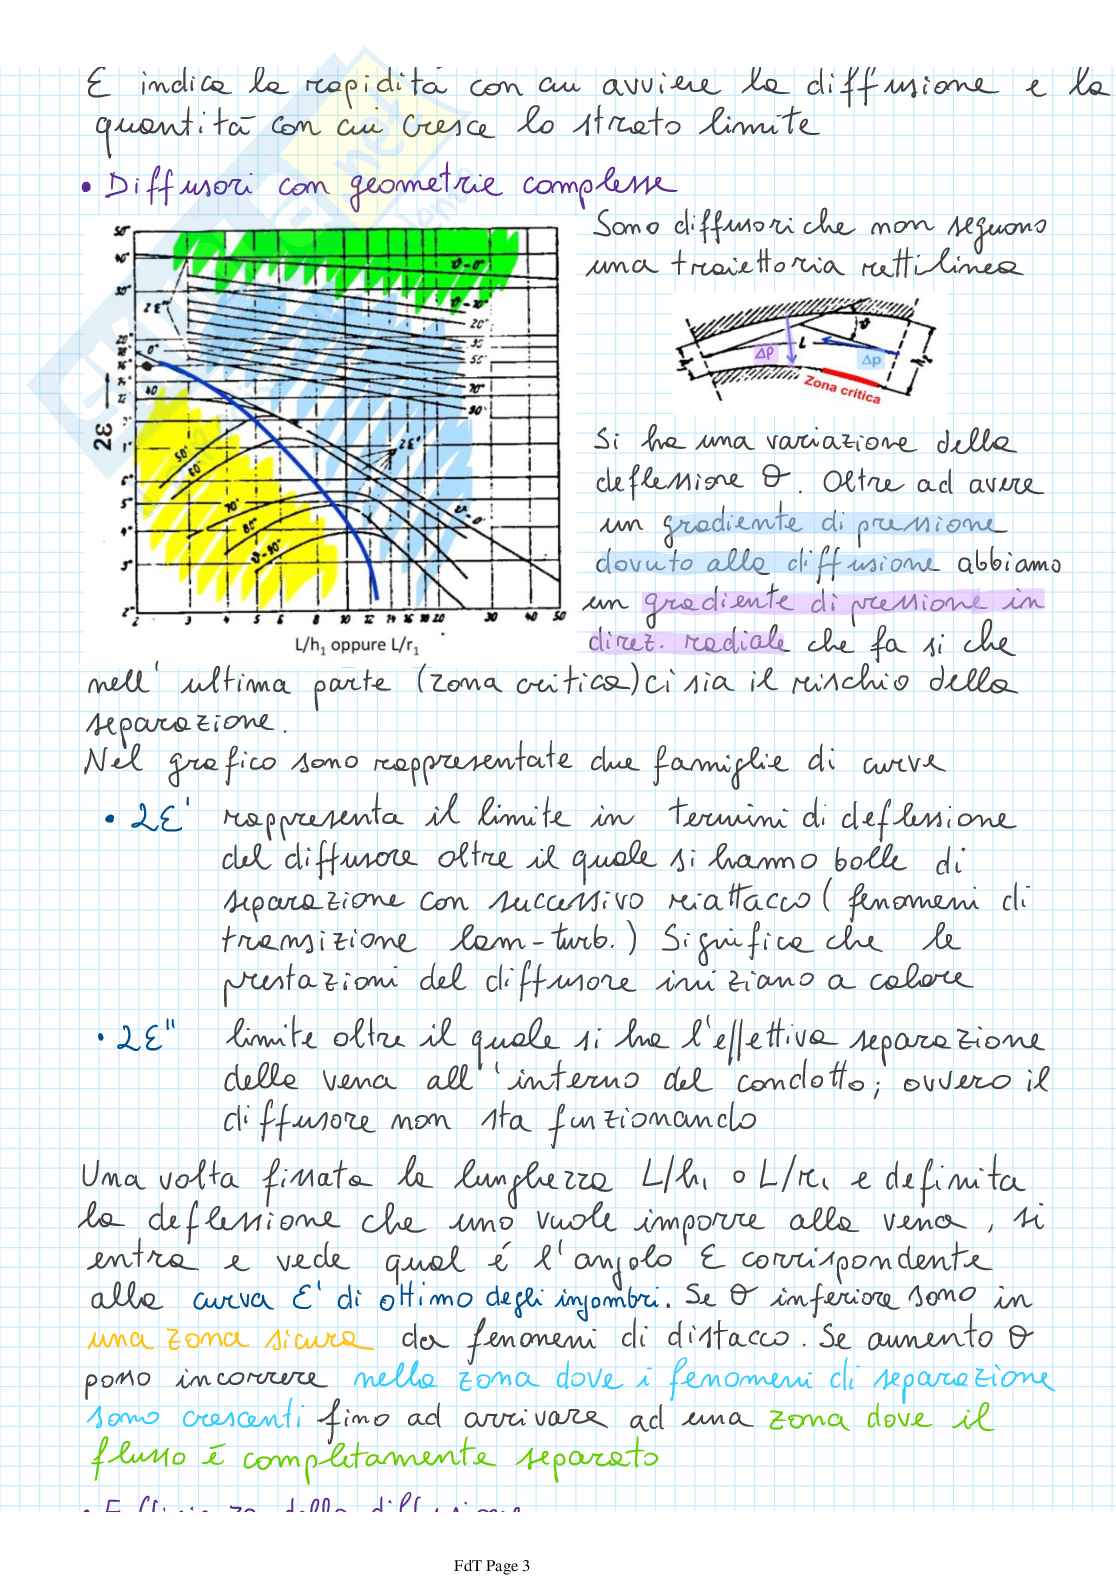 E indica la rapidità con cui avviene la diffusione e la
quantità con cui cresce lo strato limite
• Diffusori con geometrie complesse
Sono diffusori che non seguono
una traiettoria rettilinea
50°
40°
30°
2ε"
ϑ=0°
20°
70°
90°
0°
40
50°
60°
70°
80°
ϑ=90°
2ε'
ϑ=0°
6°
5°
4°
3°
2°
2ε
2 3 4 5 6 8 10 12 14 16 18 20 30 40 50
L/h₁ oppure L/r₁
L
ϑ
Δp
Δp
Zona critica
Si ha una variazione della
deflessione θ. Oltre ad avere
un gradiente di pressione
dovuto alla diffusione abbiamo
un gradiente di pressione in
direz. radiale che fa si che
nell' ultima parte (zona critica) ci sia il rischio della
separazione.
Nel grafico sono rappresentate due famiglie di curve
• 2ε' rappresenta il limite in termini di deflessione
del diffusore oltre il quale si hanno bolle di
separazione con successivo riattacco (fenomeni di
transizione lam-turb.) Significa che le
prestazioni del diffusore iniziano a calare
• 2ε" limite oltre il quale si ha l'effettiva separazione
della vena all'interno del condotto; ovvero il
diffusore non sta funzionando
Una volta fissata la lunghezza L/h₁ o L/r₁ e definita
la deflessione che uno vuole imporre alla vena, si
entra e vede qual é l'angolo ε corrispondente
alla curva ε' di ottimo degli ingombri. Se θ inferiore sono in
una zona sicura da fenomeni di distacco. Se aumento θ
posso incorrere nella zona dove i fenomeni di separazione
sono crescenti fino ad arrivare ad una zona dove il
flusso è completamente separato
FdT Page 3